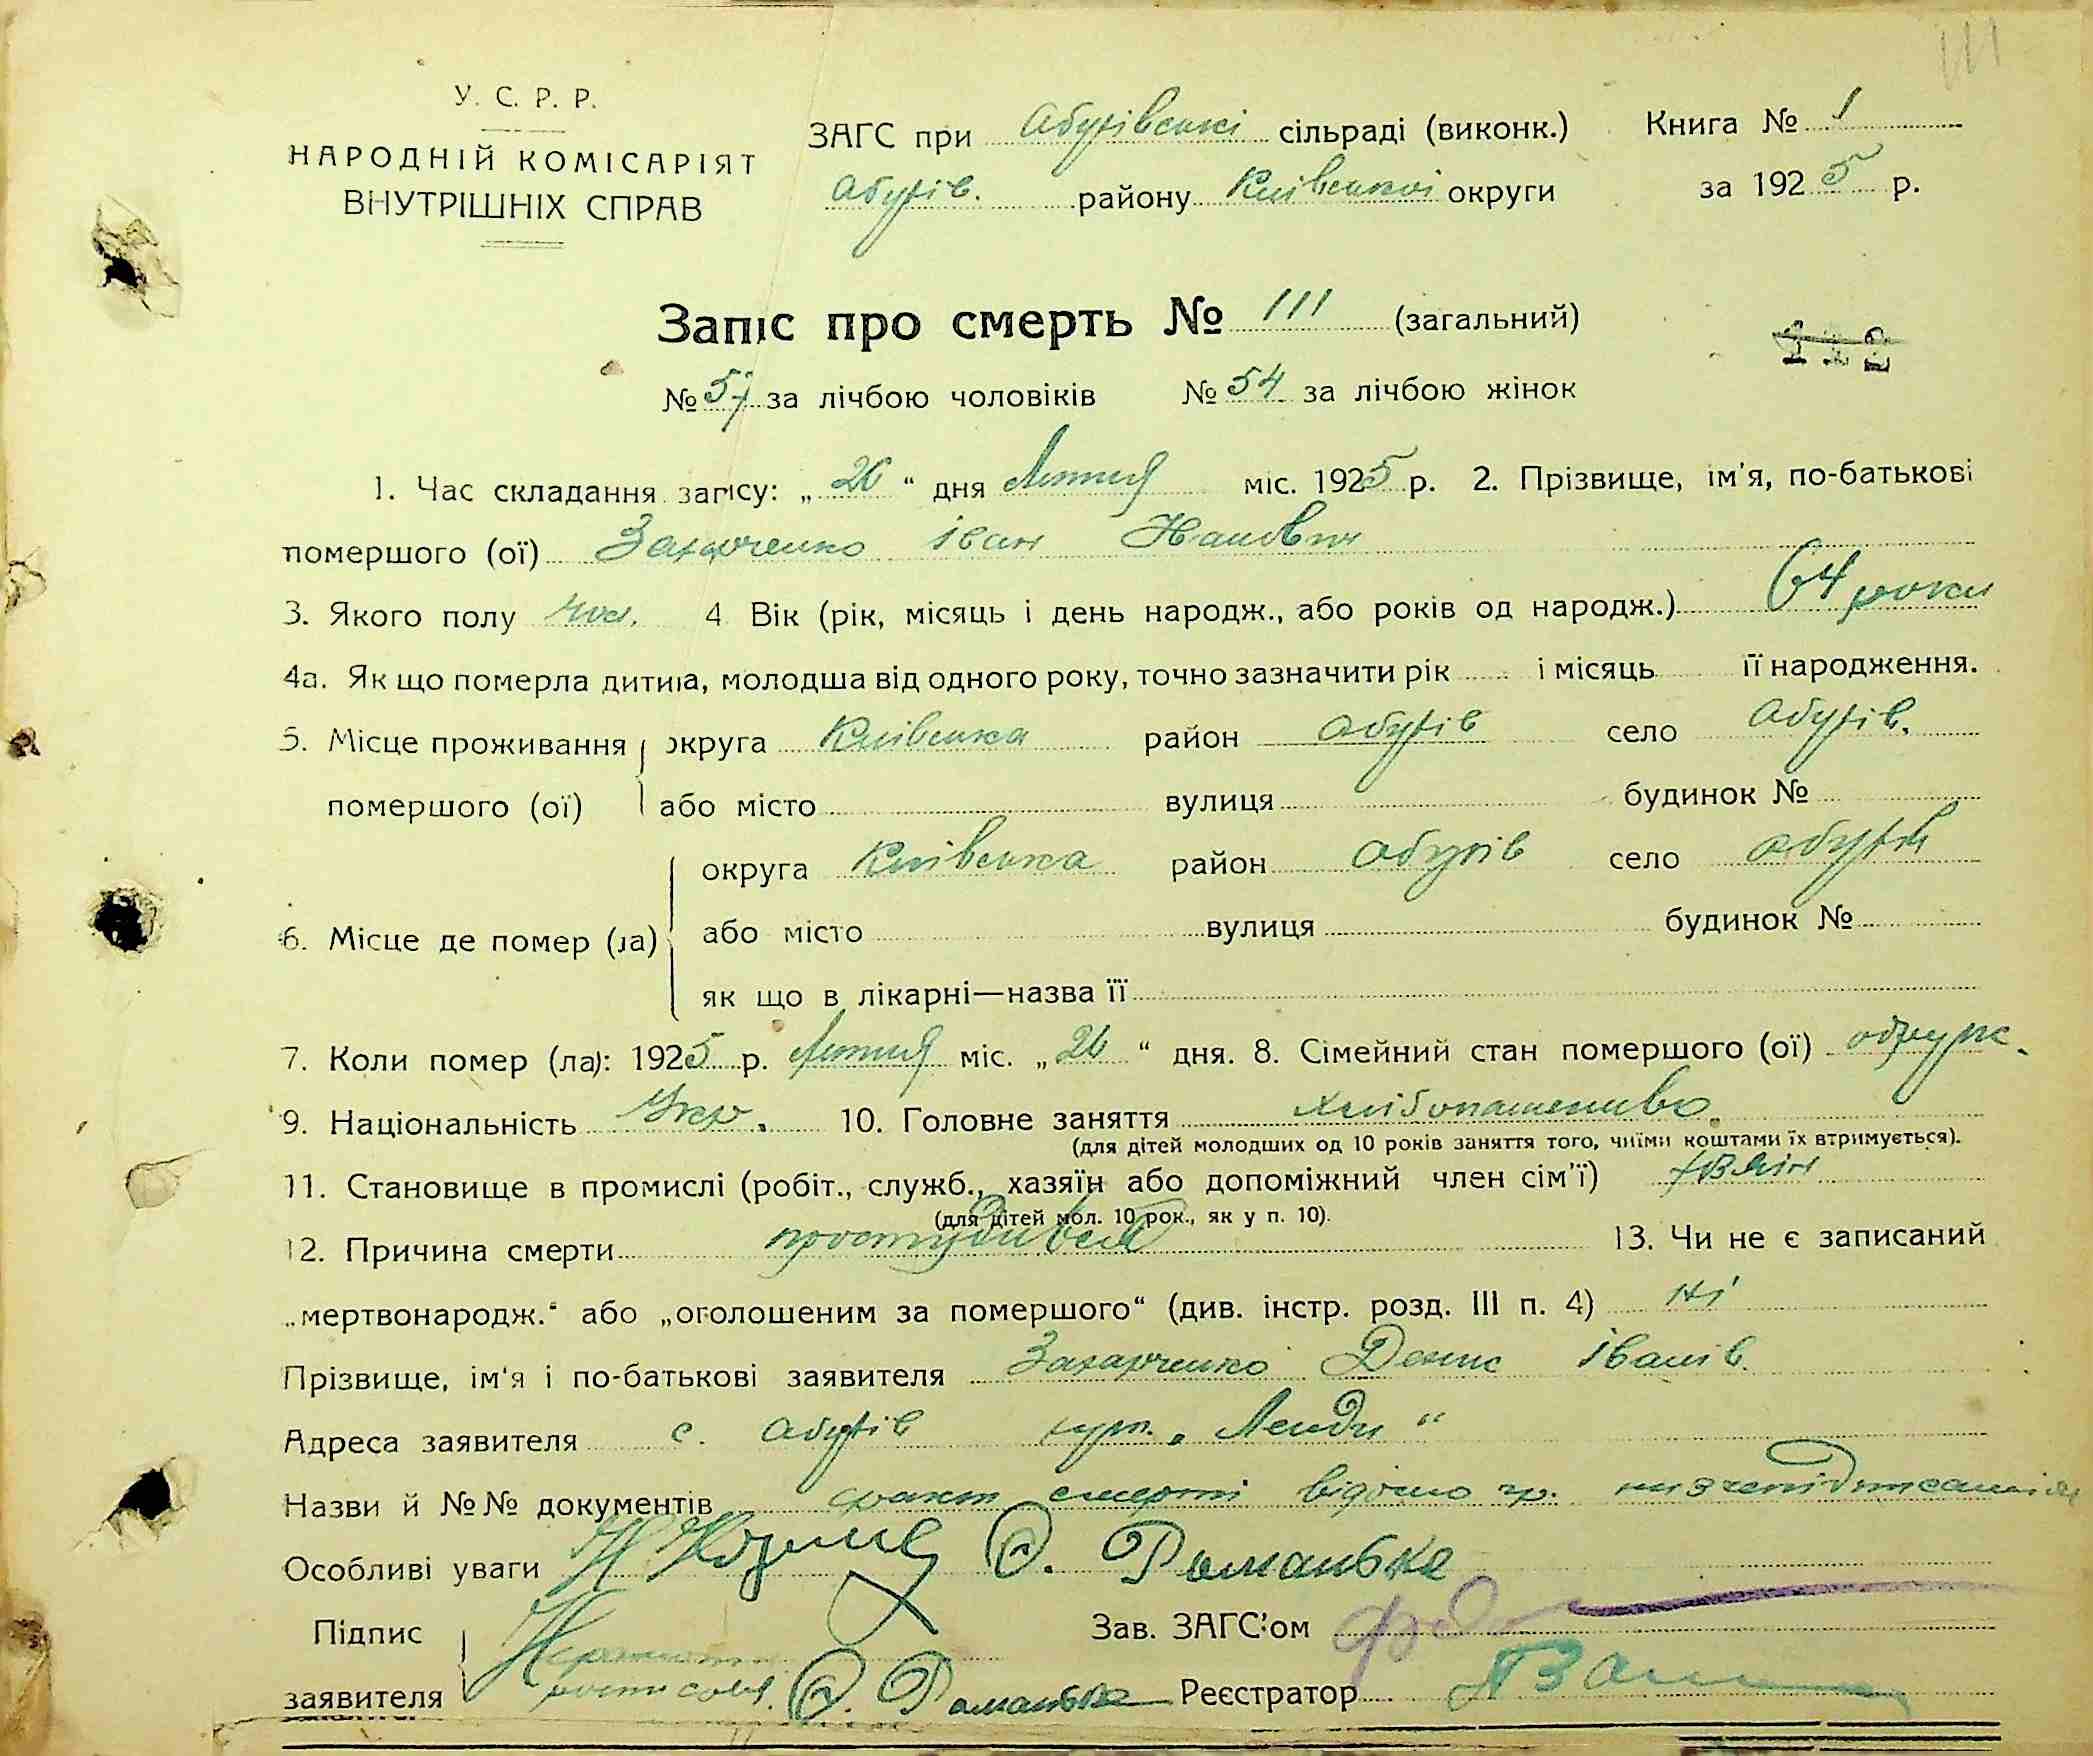 111
У. С. Р. Р.
НАРОДНІЙ КОМІСАРІЯТ
ВНУТРІШНІХ СПРАВ
ЗАГС при Обухівській сільраді (виконк.) Книга № 1
Обухів. району Київської округи за 1925 р.
Запіс про смерть № 111 (загальний)
112
№ 57 за лічбою чоловіків № 54 за лічбою жінок
1. Час складання запісу: „26“ дня Лютия міс. 1925 р. 2. Прізвище, ім'я, по-батькові
помершого (ої) Захарченко Іван
3. Якого полу чол. 4 Вік (рік, місяць і день народж., або років од народж.) 64 роки
4а. Як що померла дитина, молодша від одного року, точно зазначити рік і місяць її народження.
5. Місце проживання округа Київська район Обухів село Обухів.
помершого (ої) або місто вулиця будинок №
округа Київська район Обухів село Обухів
6. Місце де помер (ла) або місто вулиця будинок №
як що в лікарні—назва її
7. Коли помер (ла): 1925 р. Лютия міс. „26“ дня. 8. Сімейний стан помершого (ої)
9. Національність Укр. 10. Головне заняття хлібопашенство
(для дітей молодших од 10 років заняття того, чиїми коштами їх втримується).
11. Становище в промислі (робіт., служб., хазяїн або допоміжний член сім'ї)
(для дітей мол. 10 рок., як у п. 10).
12. Причина смерти простудився 13. Чи не є записаний
„мертвонародж.“ або „оголошеним за помершого“ (див. інстр. розд. III п. 4) ні
Прізвище, ім'я і по-батькові заявителя Захарченко Денис Іванів.
Адреса заявителя с. Обухів
Назви й №№ документів факт смерті відомо гр.
Особливі уваги О. Романька
Підпис Зав. ЗАГС'ом
заявителя О. Романька Реєстратор